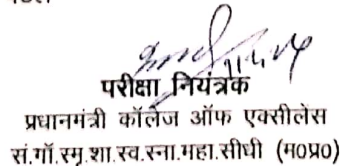 परीक्षा नियंत्रक
प्रधानमंत्री कॉलेज ऑफ एक्सीलेंस
सं.गॉ.स्मृ.शा.स्व.स्ना.महा.सीधी (म०प्र०)